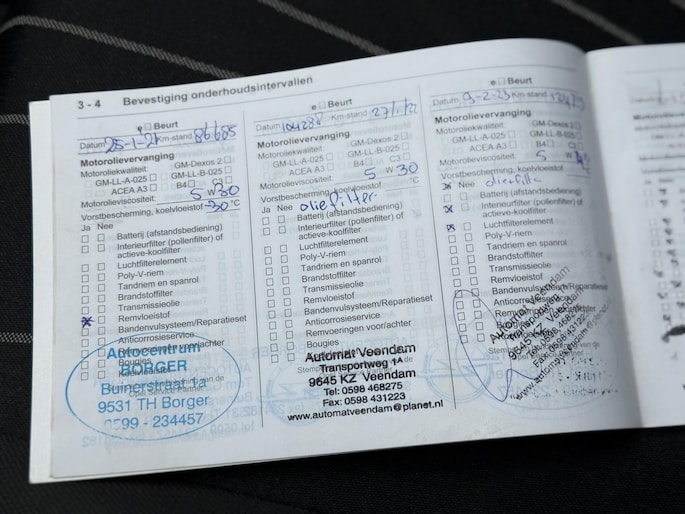 3 - 4 Bevestiging onderhoudsintervallen
e Beurt
Datum 25-1-21 Km-stand 86685
Motorolievervanging
Motoroliekwaliteit: GM-Dexos 2
GM-LL-A-025 GM-LL-B-025
ACEA A3 B4 C3
Motorolieviscositeit: 5 W 30
Vorstbescherming, koelvloeistof -30 °C
Ja Nee
Batterij (afstandsbediening)
Interieurfilter (pollenfilter) of
actieve-koolfilter
Luchtfilterelement
Poly-V-riem
Tandriem en spanrol
Brandstoffilter
Transmissieolie
Remvloeistof
Bandenvulsysteem/Reparatieset
Anticorrosieservice
Bougies
Autocentrum
BORGER
Buinerstraat 1a
9531 TH Borger
0599 - 234457
e Beurt
Datum 104288 Km-stand 27/1/22
Motorolievervanging
Motoroliekwaliteit: GM-Dexos 2
GM-LL-A-025 GM-LL-B-025
ACEA A3 B4 C3
Motorolieviscositeit: 5 W 30
Vorstbescherming, koelvloeistof
Ja Nee oliefilter
Batterij (afstandsbediening)
Interieurfilter (pollenfilter) of
actieve-koolfilter
Luchtfilterelement
Poly-V-riem
Tandriem en spanrol
Brandstoffilter
Transmissieolie
Remvloeistof
Bandenvulsysteem/Reparatieset
Anticorrosieservice
Remvoeringen voor/achter
Bougies
Automat Veendam
Transportweg 1A
9645 KZ Veendam
Tel: 0598 468275
Fax: 0598 431223
www.automatveendam@planet.nl
e Beurt
Datum 9-2-23 Km-stand
Motorolievervanging
Motoroliekwaliteit: GM-Dexos 2
GM-LL-A-025 GM-LL-B-025
ACEA A3 B4 C3
Motorolieviscositeit: 5 W
Vorstbescherming, koelvloeistof
Nee
Batterij (afstandsbediening)
Interieurfilter (pollenfilter) of
actieve-koolfilter
Luchtfilterelement
Poly-V-riem
Tandriem en spanrol
Brandstoffilter
Transmissieolie
Remvloeistof
Bandenvulsysteem/Reparatieset
Automat Veendam
Transportweg
9645 KZ Veendam